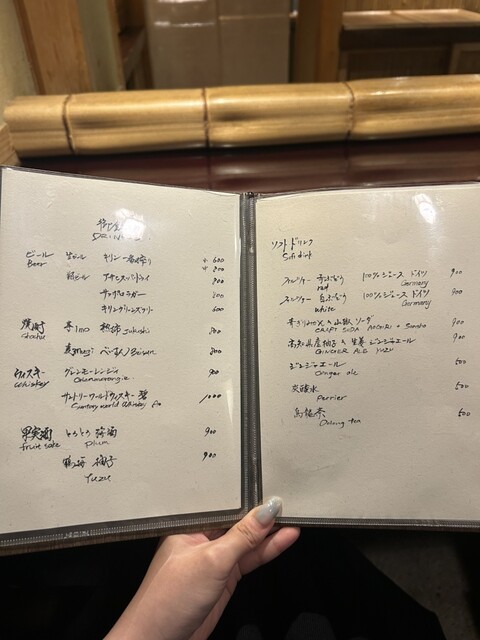 DRINK
ビール
Beer
生ビール キリン一番搾り 小 600
中 800
瓶ビール アサヒスーパードライ 800
サッポロラガー 800
キリングリーンズフリー 600
焼酎
shochu
芋 imo 800
麦 mugi 800
ウィスキー
Whiskey
グレンモーレンジィ 900
サントリーワールドウイスキー 碧 1000
Suntory world whiskey Ao
果実酒
fruit sake
とろとろ梅酒 900
Plum
柚子 900
Yuzu
ソフトドリンク
Soft drink
赤ぶどう 100%ジュース ドイツ 900
red Germany
白ぶどう 100%ジュース ドイツ 900
white Germany
山椒ソーダ 900
CRAFT SODA
高知県産柚子の生姜ジンジャエール 900
GINGER ALE YUZU
ジンジャエール 500
Ginger ale
炭酸水 500
Perrier
烏龍茶 500
Oolong tea